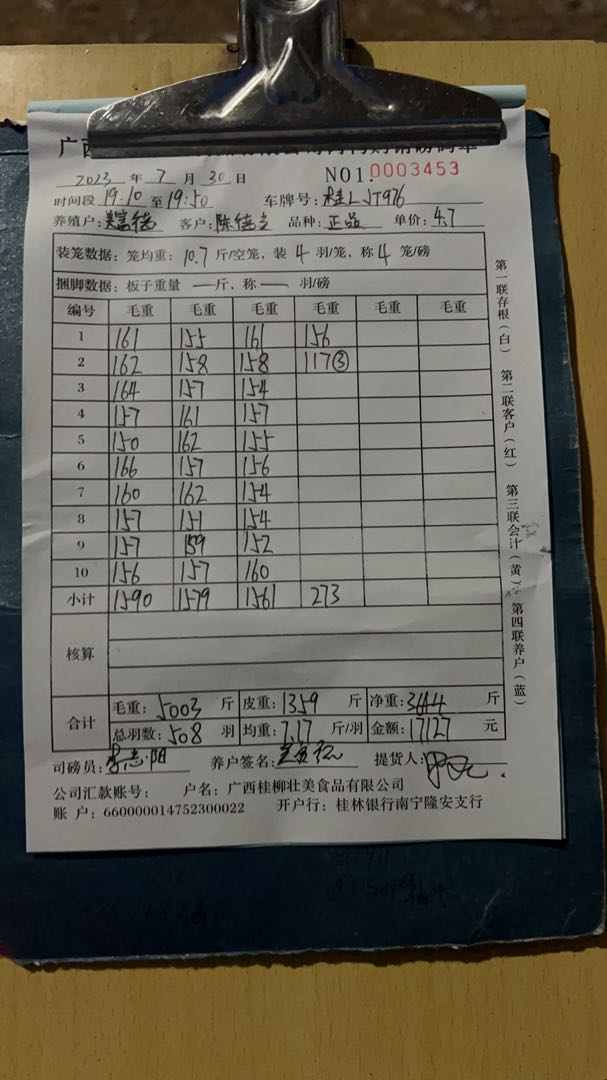 广西
2023 年 7 月 30 日 NO1: 0003453
时间段 19:10 至 19:50 车牌号: 桂LJT976
养殖户: 富德 客户: 陈德 品种: 正品 单价: 4.7
装笼数据: 笼均重: 10.7 斤/空笼, 装 4 羽/笼, 称 4 笼/磅
捆脚数据: 板子重量 — 斤, 称 — 羽/磅
编号 毛重 毛重 毛重 毛重 毛重 毛重
1 161 155 161 156
2 162 158 158 117③
3 164 157 154
4 157 161 157
5 150 162 155
6 166 157 156
7 160 162 154
8 157 151 154
9 157 159 152
10 156 157 160
小计 1590 1579 1561 273
核算
合计 毛重: 5003 斤 皮重: 1359 斤 净重: 3644 斤
总羽数: 508 羽 均重: 7.17 斤/羽 金额: 17127 元
司磅员: 养户签名: 提货人:
公司汇款账号: 户名: 广西桂柳壮美食品有限公司
账 户: 660000014752300022 开户行: 桂林银行南宁隆安支行
第一联存根(白) 第二联客户(红) 第三联会计(黄) 第四联养户(蓝)